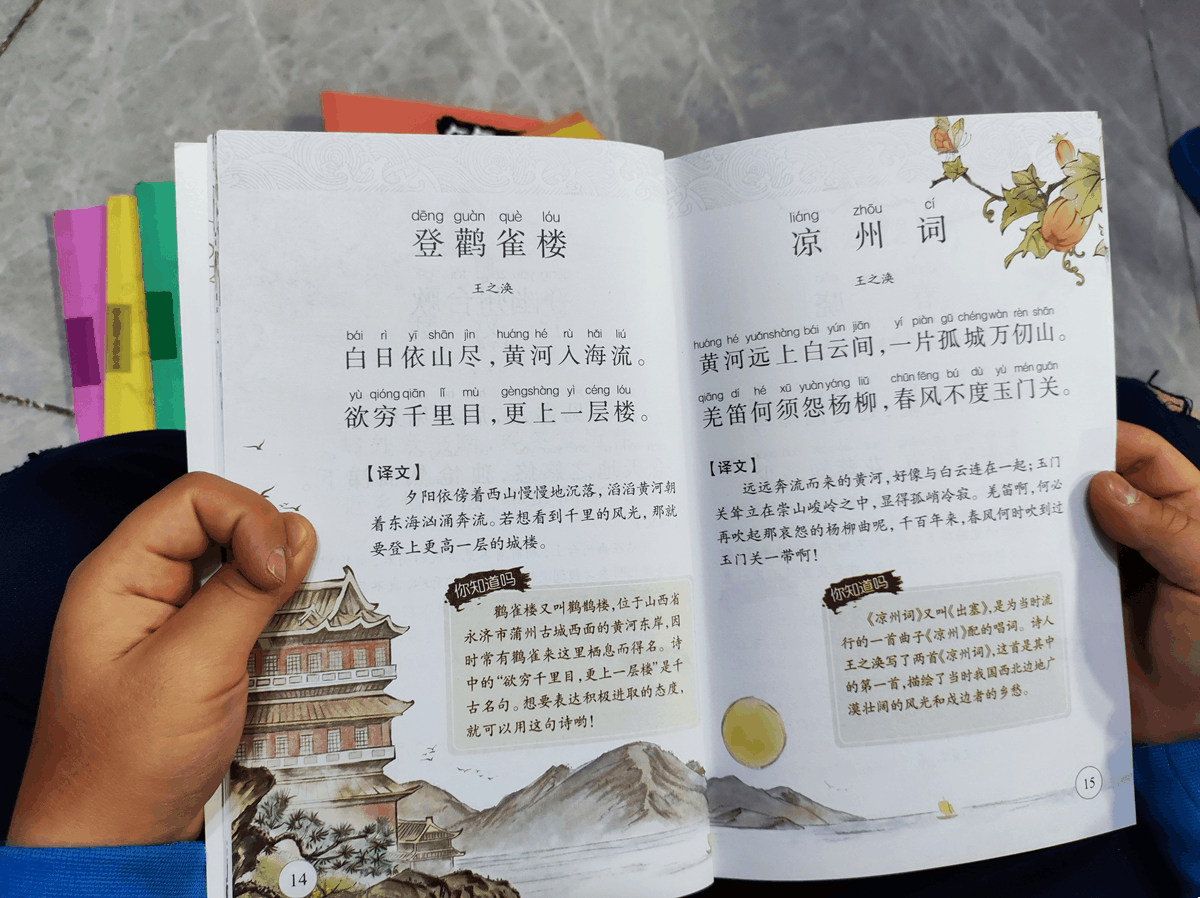 dēng guàn què lóu
登鹳雀楼
王之涣
bái rì yī shān jìn huáng hé rù hǎi liú
白日依山尽，黄河入海流。
yù qióng qiān lǐ mù gèng shàng yì céng lóu
欲穷千里目，更上一层楼。
【译文】
夕阳依傍着西山慢慢地沉落，滔滔黄河朝
着东海汹涌奔流。若想看到千里的风光，那就
要登上更高一层的城楼。
你知道吗
鹳雀楼又叫鹳鹊楼，位于山西省
永济市蒲州古城西面的黄河东岸，因
时常有鹳雀来这里栖息而得名。诗
中的“欲穷千里目，更上一层楼”是千
古名句。想要表达积极进取的态度，
就可以用这句诗哟！
14
liáng zhōu cí
凉州词
王之涣
huáng hé yuǎn shàng bái yún jiān yí piàn gū chéng wàn rèn shān
黄河远上白云间，一片孤城万仞山。
qiāng dí hé xū yuàn yáng liǔ chūn fēng bú dù yù mén guān
羌笛何须怨杨柳，春风不度玉门关。
【译文】
远远奔流而来的黄河，好像与白云连在一起；玉门
关耸立在崇山峻岭之中，显得孤峭冷寂。羌笛啊，何必
再吹起那哀怨的杨柳曲呢，千百年来，春风何时吹到过
玉门关一带啊！
你知道吗
《凉州词》又叫《出塞》，是为当时流
行的一首曲子《凉州》配的唱词。诗人
王之涣写了两首《凉州词》，这首是其中
的第一首，描绘了当时我国西北边地广
漠壮阔的风光和戍边者的乡愁。
15